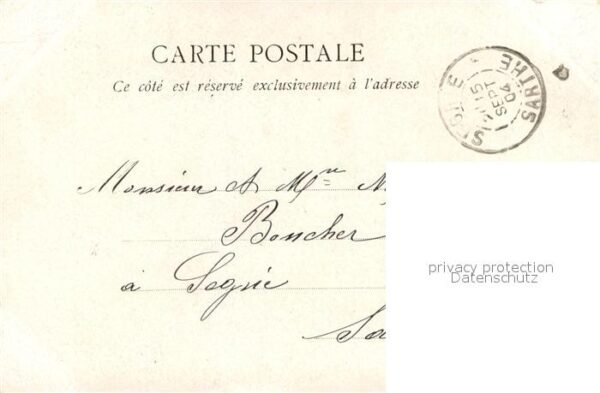 CARTE POSTALE
Ce côté est réservé exclusivement à l'adresse
SARTHE
15
SEPT
04
Monsieur & Mme
Boucher
à Segrie
Sa
privacy protection
Datenschutz